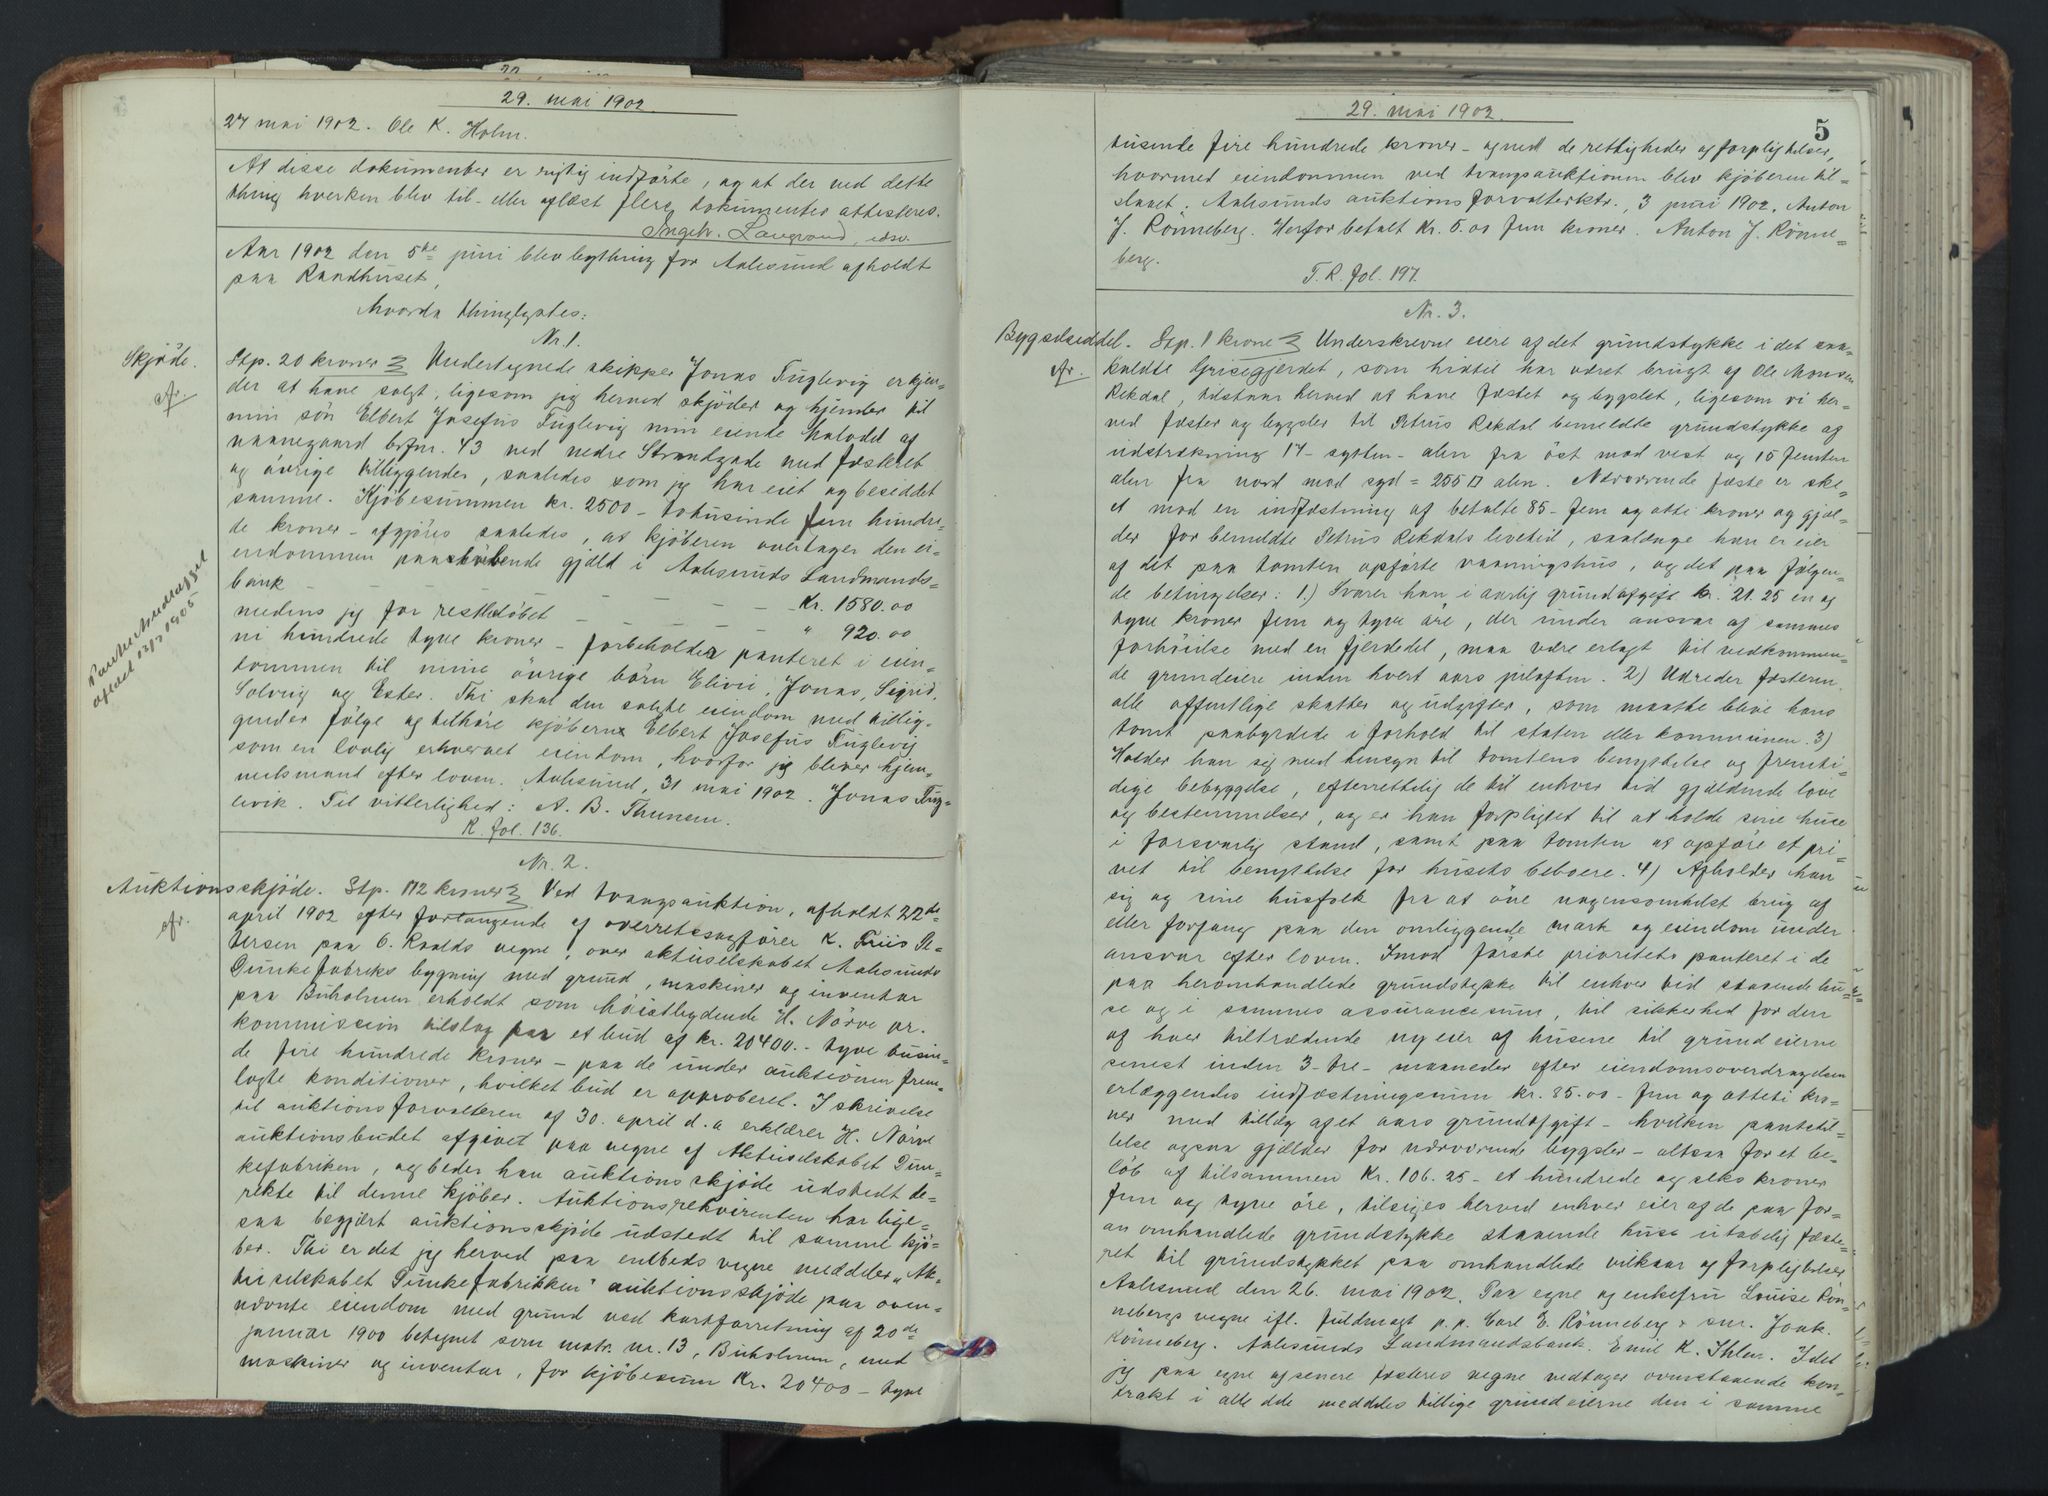 29. mai 1902
27 mai 1902. Ole K. Holm.
At disse dokumenter er rigtig indförte, og at der ved dette
thing hverken blev til- eller aflæst flere dokumenter attesteres.
Ingebr. Laugrand, edsv.
Aar 1902 den 5te juni blev bything for Aalesund afholdt
paa Raadhuset,
hvorda thinglystes:
Nr. 1.
Skjöde. Stp. 20 kroner Undertegnede skipper Jonas Fuglevig erkjen-
der at have solgt, ligesom jeg herved skjöder og hjemler til
min sön Elbert Josefus Fuglevig min eiende halvdel af
vaanegaard brfnr. 43 ved nedre Strandgade med fæsteret
og övrige tilliggender, saaledes som jeg har eiet og besiddet
samme. Kjöbesummen kr. 2500 - totusinde fem hundre-
de kroner - afgjöres saaledes, at kjöberen overtager den ei-
endommen paahvilende gjæld i Aalesunds Landmands-
bank - - - - Kr. 1580.00
medens jeg for restbelöbet - - - - " 920.00
ni hundrede tyve kroner - forbeholder panteret i eien-
dommen til mine övrige börn Elivi, Jonas, Sigrid,
Solveig og Ester. Thi skal den solgte eiendom med tillig-
gender fölge og tilhöre kjöberen Elbert Josefus Fuglevig
som en lovlig erhvervet eiendom, hvorfor jeg bliver hjem-
melsmand efter loven. Aalesund, 31 mai 1902. Jonas Fug-
levik. Til vitterlighed: A. B. Thunem.
R. fol. 136.
Panteheftelsen
aflæst 1905
Nr. 2.
Auktionsskjöde. Stp. 112 kroner Ved tvangsauktion, afholdt 22de
april 1902 efter forlangende af overretssagförer K. Friis Pe-
tersen paa C. Raalds vegne, over aktieselskabet Aalesunds
Dunkefabriks bygning med grund, maskiner og inventar
paa Buholmen, erholdt som höistbydende H. Nörve pr.
kommission tilslag paa et bud af kr. 20400.- tyve tusin-
de fire hundrede kroner - paa de under auktionen frem-
lagte konditioner, hvilket bud er approberet. I skrivelse
til auktionsforvalteren af 30. april d. a erklærer H. Nörve
auktionsbudet afgivet paa vegne af Aktieselskabet Dun-
kefabriken, og beder han auktionsskjöde udstedt di-
rekte til denne kjöber. Auktionsrekvirenten har lige-
saa begjært auktionsskjöde udstedt til samme kjö-
ber. Thi er det jeg herved paa embeds vegne meddeler „Ak-
tieselskabet Dunkefabrikken" auktionsskjöde paa oven-
nævnte eiendom med grund ved kartforretning af 20de
januar 1900 betegnet som matr. nr. 13, Buholmen, med
maskiner og inventar, for kjöbesum Kr. 20400 - tyve
29. mai 1902
5
tusinde fire hundrede kroner - og med de rettigheder og forpligtelser,
hvormed eiendommen ved tvangsauktionen blev kjöberen til-
slaaet. Aalesunds auktionsforvalterktr., 3 juni 1902. Anton
J. Rönneberg. Herfor betalt Kr. 5.00 fem kroner. Anton J. Rönne-
berg.
T. R. fol. 197.
Nr. 3.
Bygselseddel. Stp. 1 krone Underskrevne eiere af det grundstykke i det saa-
kaldte Grisegjerdet, som hidtil har været brugt af Ole Monsen
Rekdal, tilstaar herved at have fæstet og bygslet, ligesom vi her-
ved fæster og bygsler til Petrus Rekdal bemeldte grundstykke af
udstrækning 17 - sytten - alen fra öst mod vest og 15 femten
alen fra nord mod syd = 255 □ alen. Nærværende fæste er ske-
et mod en indfæstning af betalte 85 - fem og otti kroner og gjæl-
der for bemeldte Petrus Rekdals levetid, saalænge han er eier
af det paa tomten opförte vaaningshus, og det paa fölgen-
de betingelser: 1.) Svarer han i aarlig grundafgift kr. 21.25 en og
tyve kroner fem og tyve öre, der under ansvar af sammes
forhöielse med en fjerdedel, maa være erlagt til vedkommen-
de grundeiere inden hvert aars juleaften. 2) Udreder fæsteren
alle offentlige skatter og udgifter, som maatte blive hans
tomt paabyrdede i forhold til staten eller kommunen. 3)
Holder han sig med hensyn til tomtens benyttelse og fremti-
dige bebyggelse, efterrettelig de til enhver tid gjældende love
og bestemmelser, og er han forpligtet til at holde sine huse
i forsvarlig stand, samt paa tomten at opföre et pri-
vet til benyttelse for husets beboere. 4) Afholder han
sig og sine husfolk fra at öve nogensomhelst brug af
eller forfang paa den omliggende mark og eiendom under
ansvar efter loven. Imod förste prioritets panteret i de
paa heromhandlede grundstykke til enhver tid staaende hu-
se og i sammes assurancesum, til sikkerhed for den
af hver tiltrædende ny eier af husene til grundeierne
senest inden 3 - tre - maaneder efter eiendomsoverdragelsen
erlæggendes indfæstningssum kr. 85.00 - fem og otteti kro-
ner med tillæg af et aars grundafgift - hvilken pantstil-
lelse ogsaa gjælder for nærværende bygsler - altsaa for et be-
löb af tilsammen Kr. 106.25 - et hundrede og seks kroner
fem og tyve öre, tilsiges herved enhver eier af de paa for-
an omhandlede grundstykke staaende huse utabelig fæste-
ret til grundstykket paa omhandlede vilkaar og forpligtelser
Aalesund den 26. mai 1902. Paa egne og enkefru Louise Rön-
nebergs vegne ifl. fuldmagt p. p. Carl E. Rönneberg & sön. Joak.
Rönneberg. Aalesunds Landmandsbank. Emil K. Ihlen. Idet
jeg paa egne og senere fæsteres vegne vedtager ovenstaaende kon-
trakt i alle dele meddeles tillige grundeierne den i samme